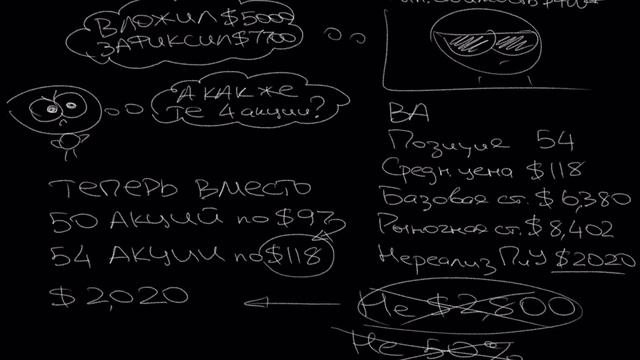 ВЛОЖИЛ $5000
ЗАФИКСИЛ $7700
А КАК ЖЕ
ТЕ 4 АКЦИИ?
ТЕПЕРЬ ВМЕСТО
50 АКЦИЙ ПО $93
54 АКЦИИ ПО $118
$2,020
BA
Позиция 54
Средн. цена $118
Базовая ст. $6,380
Рыночная ст. $8,402
Нереализ ПиУ $2020
Не $2,800
Не 50%